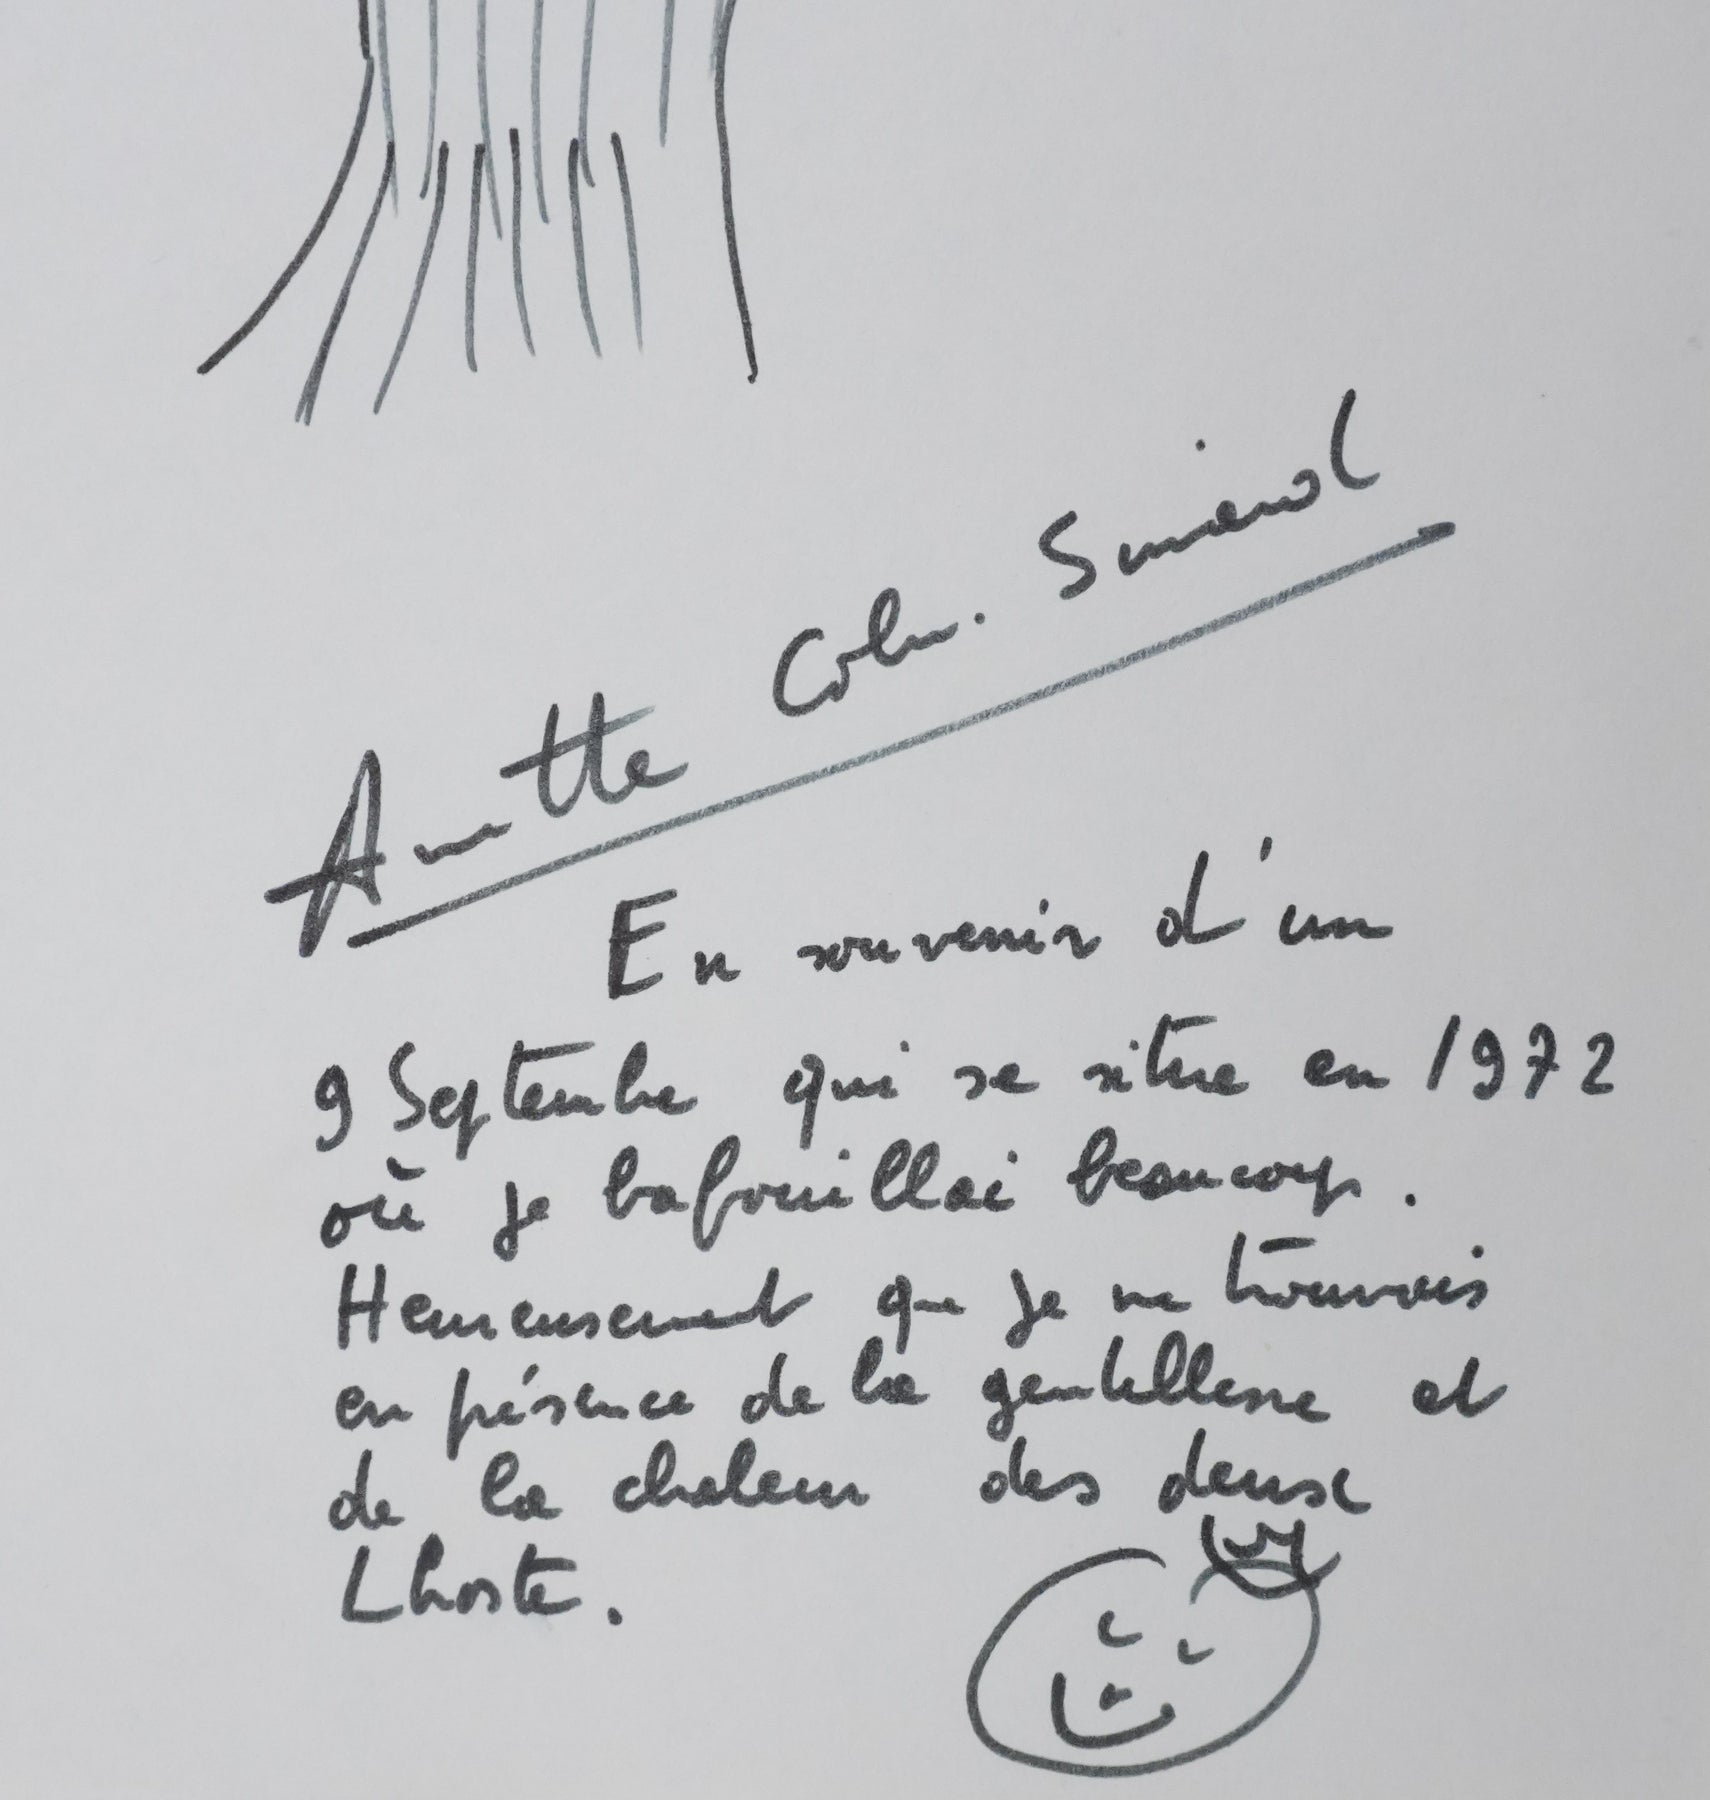 Annette Colin. Simenol
En souvenir d'un
9 Septembre qui se situe en 1972
où je bafouillai beaucoup.
Heureusement que je me trouvais
en présence de la gentillesse et
de la chaleur des deux
Lhoste.